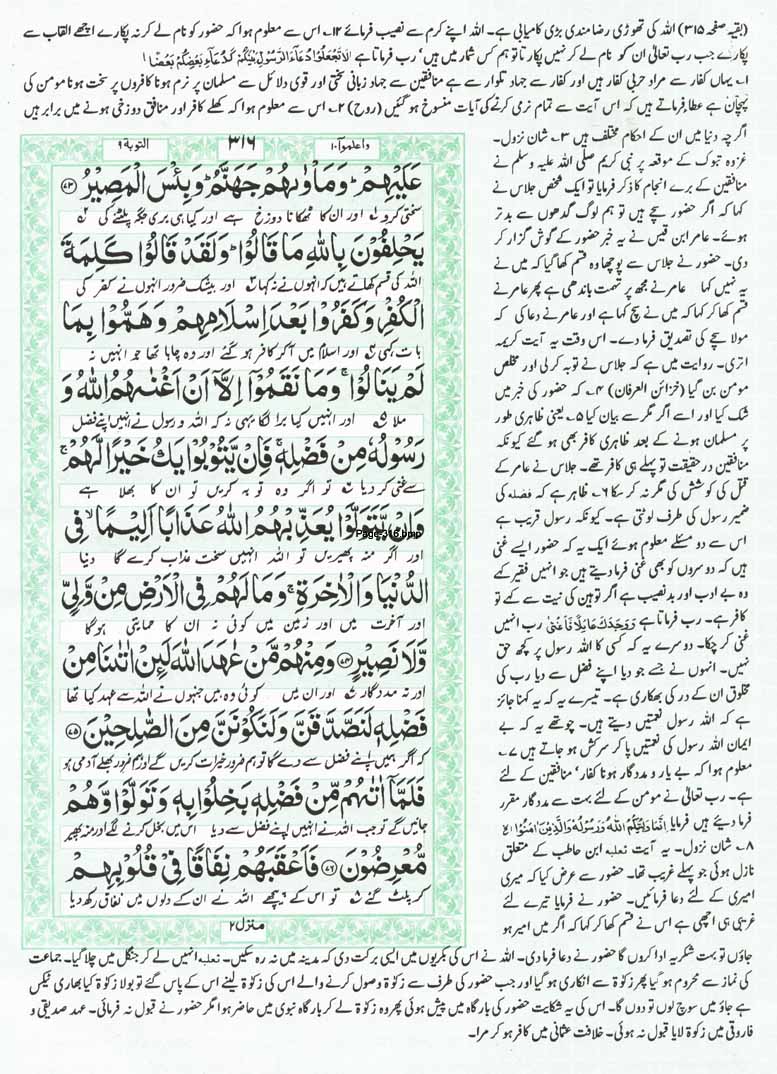 (بقیہ صفحہ ۳۱۵) اللہ کی تھوڑی رضا مندی بڑی کامیابی ہے۔ اللہ اپنے کرم سے نصیب فرمائے ۱۲۔ اس سے معلوم ہوا کہ حضور کو نام لے کر نہ پکارے اچھے القاب سے
پکارے جب رب تعالیٰ ان کو نام لے کر نہیں پکارتا تو ہم کس شمار میں ہیں' رب فرماتا ہے لَا تَجْعَلُوْا دُعَآءَ الرَّسُوْلِ بَيْنَكُمْ كَدُعَآءِ بَعْضِكُمْ بَعْضًا
۱۔ یہاں کفار سے مراد حربی کفار ہیں اور کفار سے جہاد تلوار سے ہے منافقین سے جہاد زبانی سختی اور قوی دلائل سے مسلمان پر نرم ہونا کافروں پر سخت ہونا مومن کی
پہچان ہے عطا فرماتے ہیں کہ اس آیت سے تمام نرمی کرنے کی آیات منسوخ ہو گئیں (روح) ۲۔ اس سے معلوم ہوا کہ کھلے کافر اور منافق دوزخی ہونے میں برابر ہیں
اگرچہ دنیا میں ان کے احکام مختلف ہیں ۳۔ شان نزول۔
غزوہ تبوک کے موقعہ پر نبی کریم صلی اللہ علیہ وسلم نے
منافقین کے برے انجام کا ذکر فرمایا تو ایک شخص جلاس نے
کہا کہ اگر حضور سچے ہیں تو ہم لوگ گدھوں سے بدتر
ہوئے۔ عامر ابن قیس نے یہ خبر حضور کے گوش گزار کر
دی۔ حضور نے جلاس سے پوچھا وہ قسم کھا گیا کہ میں نے
یہ نہیں کہا عامر نے مجھ پر تہمت باندھی ہے پھر عامر نے
قسم کھا کر کہا کہ میں نے سچ کہا ہے اور عامر نے دعا کی کہ
مولا سچے کی تصدیق فرما دے۔ اس وقت یہ آیت کریمہ
اتری۔ روایت میں ہے کہ جلاس نے توبہ کر لی اور مخلص
مومن بن گیا (خزائن العرفان) ۴۔ کہ حضور کی خبر میں
شک کیا اور اسے اگر مگر سے بیان کیا ۵۔ یعنی ظاہری طور
پر مسلمان ہونے کے بعد ظاہری کافر بھی ہو گئے کیونکہ
منافقین در حقیقت تو پہلے ہی کافر تھے۔ جلاس نے عامر کے
قتل کی کوشش کی مگر نہ کر سکا ۶۔ ظاہر ہے کہ فضلہ کی
ضمیر رسول کی طرف لوٹتی ہے۔ کیونکہ رسول قریب ہے
اس سے دو مسئلے معلوم ہوئے ایک یہ کہ حضور ایسے غنی
ہیں کہ دوسروں کو بھی غنی فرما دیتے ہیں جو انہیں فقیر کہے
وہ بے ادب اور بد نصیب ہے اگر توہین کی نیت سے کہے تو
کافر ہے۔ رب فرماتا ہے وَوَجَدَكَ عَآئِلًا فَاَغْنٰى رب انہیں
غنی کر چکا۔ دوسرے یہ کہ کسی کا اللہ رسول پر کچھ حق
نہیں۔ انہوں نے جسے جو دیا اپنے فضل سے دیا رب کی
مخلوق ان کے در کی بھکاری ہے۔ تیسرے یہ کہ یہ کہنا جائز
ہے کہ اللہ رسول نعمتیں دیتے ہیں۔ چوتھے یہ کہ بے
ایمان اللہ رسول کی نعمتیں پا کر سرکش ہو جاتے ہیں ۷۔
معلوم ہوا کہ بے یار و مددگار ہونا کفار' منافقین کے لئے
ہے۔ رب تعالیٰ نے مومن کے لئے بہت سے مددگار مقرر
فرما دیئے ہیں فرمایا اِنَّمَا وَلِيُّكُمُ اللهُ وَرَسُوْلُهٗ وَالَّذِيْنَ اٰمَنُوْا الآیہ
۸۔ شان نزول۔ یہ آیت ثعلبہ ابن حاطب کے متعلق
نازل ہوئی جو پہلے غریب تھا۔ حضور سے عرض کیا کہ میری
امیری کے لئے دعا فرمائیں۔ حضور نے فرمایا تیرے لئے
غریبی ہی اچھی ہے اس نے قسم کھا کر کہا کہ اگر میں امیر ہو
التوبة ۹ ۳۱۶ واعلموا ۱۰
عَلَيْهِمْ ؕ وَمَاْوٰىهُمْ جَهَنَّمُ ؕ وَبِئْسَ الْمَصِيْرُ ﴿۷۳﴾
سختی کرو ۱؎ اور ان کا ٹھکانا دوزخ ہے اور کیا ہی بری جگہ پلٹنے کی ۲؎
يَحْلِفُوْنَ بِاللّٰهِ مَا قَالُوْا ؕ وَلَقَدْ قَالُوْا كَلِمَةَ
اللہ کی قسم کھاتے ہیں کہ انہوں نے نہ کہا ۳؎ اور بیشک ضرور انہوں نے کفر کی
الْكُفْرِ وَكَفَرُوْا بَعْدَ اِسْلَامِهِمْ وَهَمُّوْا بِمَا
بات کہی ۴؎ اور اسلام میں آ کر کافر ہو گئے اور وہ چاہا تھا جو انہیں نہ
لَمْ يَنَالُوْا ۚ وَمَا نَقَمُوْۤا اِلَّاۤ اَنْ اَغْنٰىهُمُ اللّٰهُ وَ
ملا ۵؎ اور انہیں کیا برا لگا یہی نہ کہ اللہ و رسول نے انہیں اپنے فضل
رَسُوْلُهٗ مِنْ فَضْلِهٖ ۚ فَاِنْ يَّتُوْبُوْا يَكُ خَيْرًا لَّهُمْ ۚ
سے غنی کر دیا ۶؎ تو اگر وہ توبہ کریں تو ان کا بھلا ہے
وَاِنْ يَّتَوَلَّوْا يُعَذِّبْهُمُ اللّٰهُ عَذَابًا اَلِيْمًا ۙ فِى
Page-316.bmp
اور اگر منہ پھیریں تو اللہ انہیں سخت عذاب کرے گا دنیا
الدُّنْيَا وَالْاٰخِرَةِ ۚ وَمَا لَهُمْ فِى الْاَرْضِ مِنْ وَّلِىٍّ
اور آخرت میں اور زمین میں کوئی نہ ان کا حمایتی ہوگا
وَّلَا نَصِيْرٍ ﴿۷۴﴾ وَمِنْهُمْ مَّنْ عٰهَدَ اللّٰهَ لَئِنْ اٰتٰىنَا مِنْ
اور نہ مددگار ۷؎ اور ان میں کوئی وہ ہیں جنہوں نے اللہ سے عہد کیا تھا
فَضْلِهٖ لَنَصَّدَّقَنَّ وَلَنَكُوْنَنَّ مِنَ الصّٰلِحِيْنَ ﴿۷۵﴾
کہ اگر ہمیں اپنے فضل سے دے گا تو ہم ضرور خیرات کریں گے اور ہم ضرور بھلے آدمی ہو
فَلَمَّاۤ اٰتٰىهُمْ مِّنْ فَضْلِهٖ بَخِلُوْا بِهٖ وَتَوَلَّوْا وَّهُمْ
جائیں گے تو جب اللہ نے انہیں اپنے فضل سے دیا اس میں بخل کرنے لگے اور منہ پھیر
مُّعْرِضُوْنَ ﴿۷۶﴾ فَاَعْقَبَهُمْ نِفَاقًا فِىْ قُلُوْبِهِمْ
کر پلٹ گئے تو اس کے پیچھے اللہ نے ان کے دلوں میں نفاق رکھ دیا
منزل ۲
جاؤں تو بہت شکریہ ادا کروں گا حضور نے دعا فرما دی۔ اللہ نے اس کی بکریوں میں ایسی برکت دی کہ مدینہ میں نہ رہ سکیں۔ ثعلبہ انہیں لے کر جنگل میں چلا گیا۔ جماعت
کی نماز سے محروم ہو گیا پھر زکوٰۃ سے انکاری ہو گیا اور جب حضور کی طرف سے زکوٰۃ وصول کرنے والے اس کی زکوٰۃ لینے اس کے پاس گئے تو بولا زکوٰۃ کیا بھاری ٹیکس
ہے جاؤ میں سوچ لوں تو دوں گا۔ اس کی یہ شکایت حضور کی بارگاہ میں پیش ہوئی پھر وہ زکوٰۃ لے کر بارگاہ نبوی میں حاضر ہوا مگر حضور نے قبول نہ فرمائی۔ عہد صدیقی و
فاروقی میں زکوٰۃ لایا قبول نہ ہوئی۔ خلافت عثمانی میں کافر ہو کر مرا۔